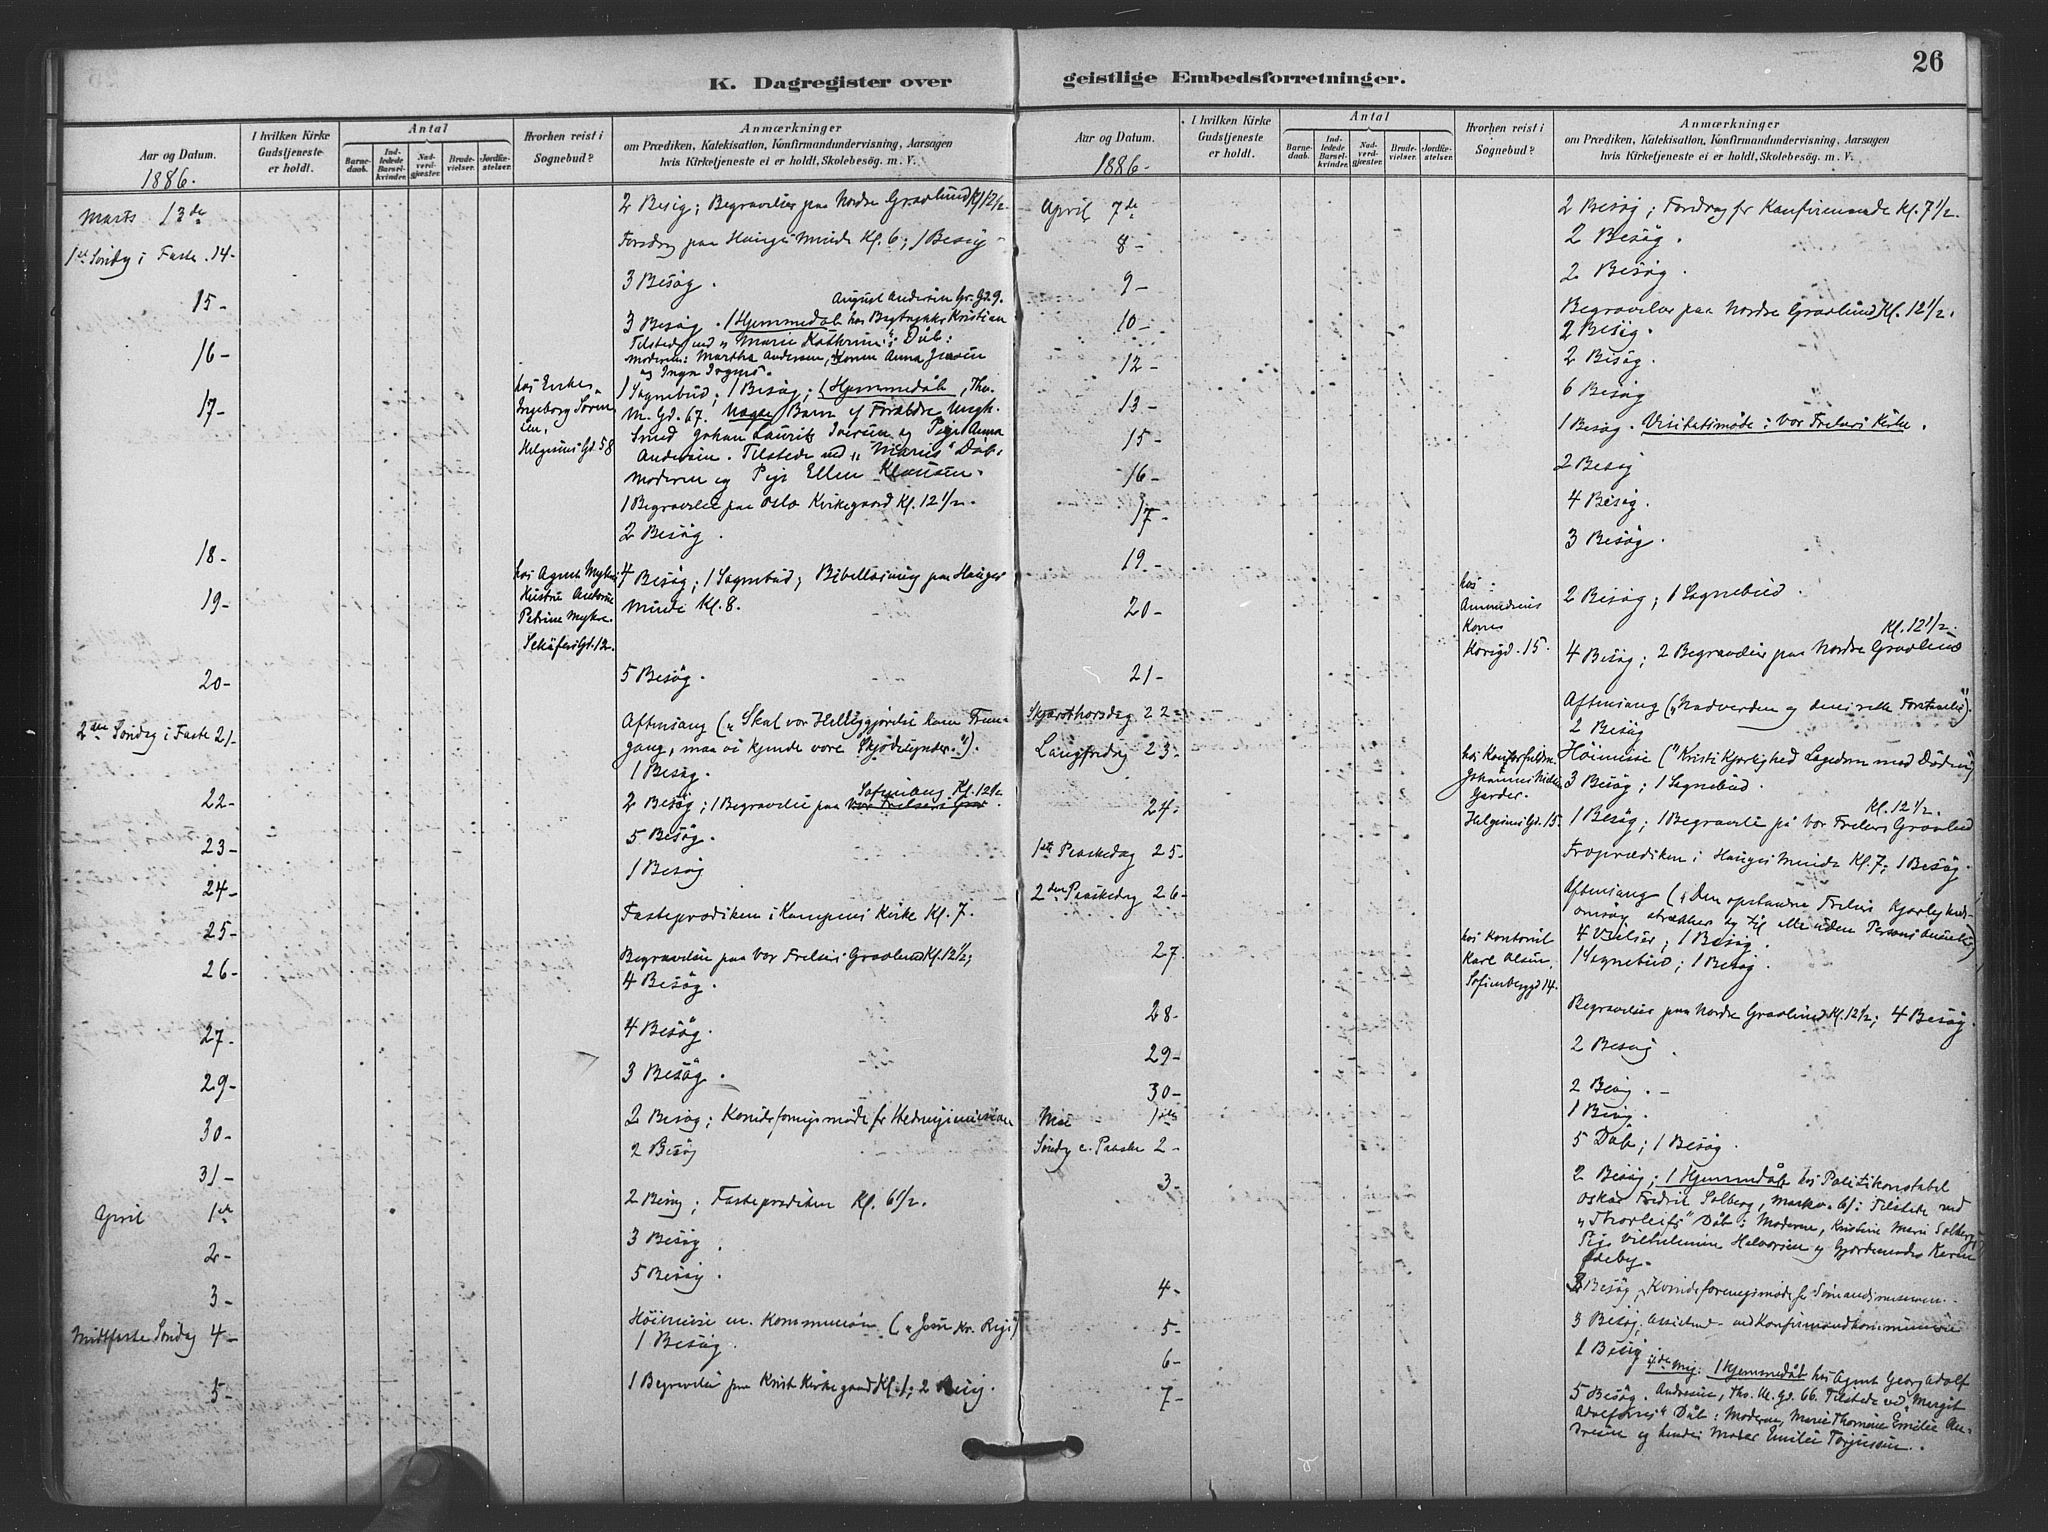 26
K. Dagregister over
Aar og Datum.
1886.
I hvilken Kirke Gudstjeneste er holdt.
Antal
Barnedaab.
Indledede Barselkvinder.
Nadverdgjæster.
Brudevielser.
Jordfæstelser.
Hvorhen reist i Sognebud?
Anmærkninger
om Prædiken, Katekisation, Konfirmandundervisning, Aarsagen
hvis Kirketjeneste ei er holdt, Skolebesøg. m. V.
Marts 13de
2 Besøg; Begravelse paa Nordre Gravlund Kl 12 1/2.
1ste Søndg i Faste 14-
Foredrag paa Hauges Minde Kl. 6; 1 Besøg
15-
3 Besøg.
16-
August Andersen Gr. Gd. 9.
3 Besøg. 1 Hjemmedåb hos Bogtrykker Kristian
Tilstede ved "Marie Kathrine's" Dåb:
Moderen: Martha Andersen, Konen Anna Jensen
17-
hos Enkes
Ingeborg Søren
sen,
Helgesens Gd 58
1 Sognebud; 1 Besøg; 1 Hjemmedåb, Thv.
M. Gd. 67. Uægte Barn af Forældre Ungk.
Smed Johan Laurits Iversen og Pige Anna
Andersen. Tilstede ved "Marius" Dåb:
Moderen og Pige Ellen Klausen.
1 Begravelse paa Oslo Kirkegaard Kl. 12 1/2.
18-
2 Besøg.
19-
hos Agent Mykre
Hustru
Petrine Mykre.
Schäfers Gd. 12.
4 Besøg; 1 Sognebud; Bibellæsning paa Hauges
Minde Kl. 8.
20-
5 Besøg.
2den Søndg i Faste 21-
Aftensang ("Skal vor Helliggjørelse have Frem-
gang, maa vi kjende vore Skjødesynder.").
1 Besøg.
22-
2 Besøg; 1 Begravelse paa Vor Frelsers Grav. Sofienberg Kl. 12 1/2
23-
5 Besøg.
24-
1 Besøg
25-
Fasteprædiken i Kampens Kirke Kl. 7.
26-
Begravelse paa Vor Frelsers Gravlund Kl. 12 1/2;
4 Besøg.
27-
4 Besøg.
29-
3 Besøg.
30-
2 Besøg; Kvindeforeningsmøde for
31-
2 Besøg
April 1ste
2 Besøg; Fasteprædiken Kl. 6 1/2.
2-
3 Besøg.
3-
5 Besøg.
Midtfaste Søndag 4-
Høimesse m. Kommunion
1 Besøg.
5-
1 Begravelse paa Krist Kirkegaard Kl. 1; 2 Besøg.
geistlige Embedsforretninger.
Aar og Datum.
1886.
I hvilken Kirke Gudstjeneste er holdt.
Antal
Barnedaab.
Indledede Barselkvinder.
Nadverdgjæster.
Brudevielser.
Jordfæstelser.
Hvorhen reist i Sognebud?
Anmærkninger
om Prædiken, Katekisation, Konfirmandundervisning, Aarsagen
hvis Kirketjeneste ei er holdt, Skolebesøg. m. V.
April 7de
2 Besøg; Foredrag for Konfirmerede Kl. 7 1/2.
8-
2 Besøg.
9-
2 Besøg.
10-
Begravelse paa Nordre Gravlund Kl. 12 1/2.
2 Besøg.
12-
2 Besøg.
13-
6 Besøg
15-
1 Besøg. Visitatsmøde i Vor Frelsers Kirke.
16-
2 Besøg
17-
4 Besøg.
19-
3 Besøg.
20-
hos
Amundsens
Kone
Korsgd. 15.
2 Besøg; 1 Sognebud.
21-
Kl. 12 1/2.
4 Besøg; 2 Begravelser paa Nordre Gravlund
Skjærthorsdag 22-
Aftensang ("Nadverden og dens rette Forstaaelse")
2 Besøg
Langfredag 23-
hos
Johannes
Garder.
Helgesens Gd. 15.
Høimesse ("Kristi Kjærlighed Lægedom mod Døden")
3 Besøg; 1 Sognebud.
24-
Kl. 12 1/2.
1 Besøg; 1 Begravelse på Vor Frelsers Gravlund
1ste Paaskedag 25-
Froprædiken i Hauges Minde Kl. 7; 1 Besøg.
2den Paaskedag 26-
Aftensang ("Den opstandne Frelsers Kjærligheds-
omsorg strækker sig til alle uden Persons Anseelse")
4 Vielser; 1 Besøg.
27-
hos Kontorist
Karl Olsen,
Sofienberggd 14.
1 Sognebud; 1 Besøg.
28-
Begravelse paa Nordre Gravlund Kl. 12 1/2; 4 Besøg.
29-
2 Besøg.
30-
2 Besøg.
Mai 1ste
1 Besøg.
Søndg e. Paaske 2-
5 Dåb; 1 Besøg.
3-
2 Besøg; 1 Hjemmedåb hos Politikonstabel
Oskar Fredrik Solberg, Markv. 61: Tilstede ved
"Thorleifs" Dåb: Moderen, Kristine Marie Solberg,
Pige Vilhelmine Halvorsen og Gjordemoder Karen
Ødeby.
4-
3 Besøg, Kvindeforeningsmøde for Sømandsmissionen.
5-
3 Besøg, Assisterede ved Konfirmandkommunion
6-
1 Besøg
7-
4de Maj: 1 Hjemmedåb hos Agent Georg Adolf
5 Besøg. Andresen, Ths. M. Gd. 66. Tilstede ved Margit
Dåb: Moderen, Marie Thomine Emilie An-
dresen og hendes Moder Emilie Torjussen.